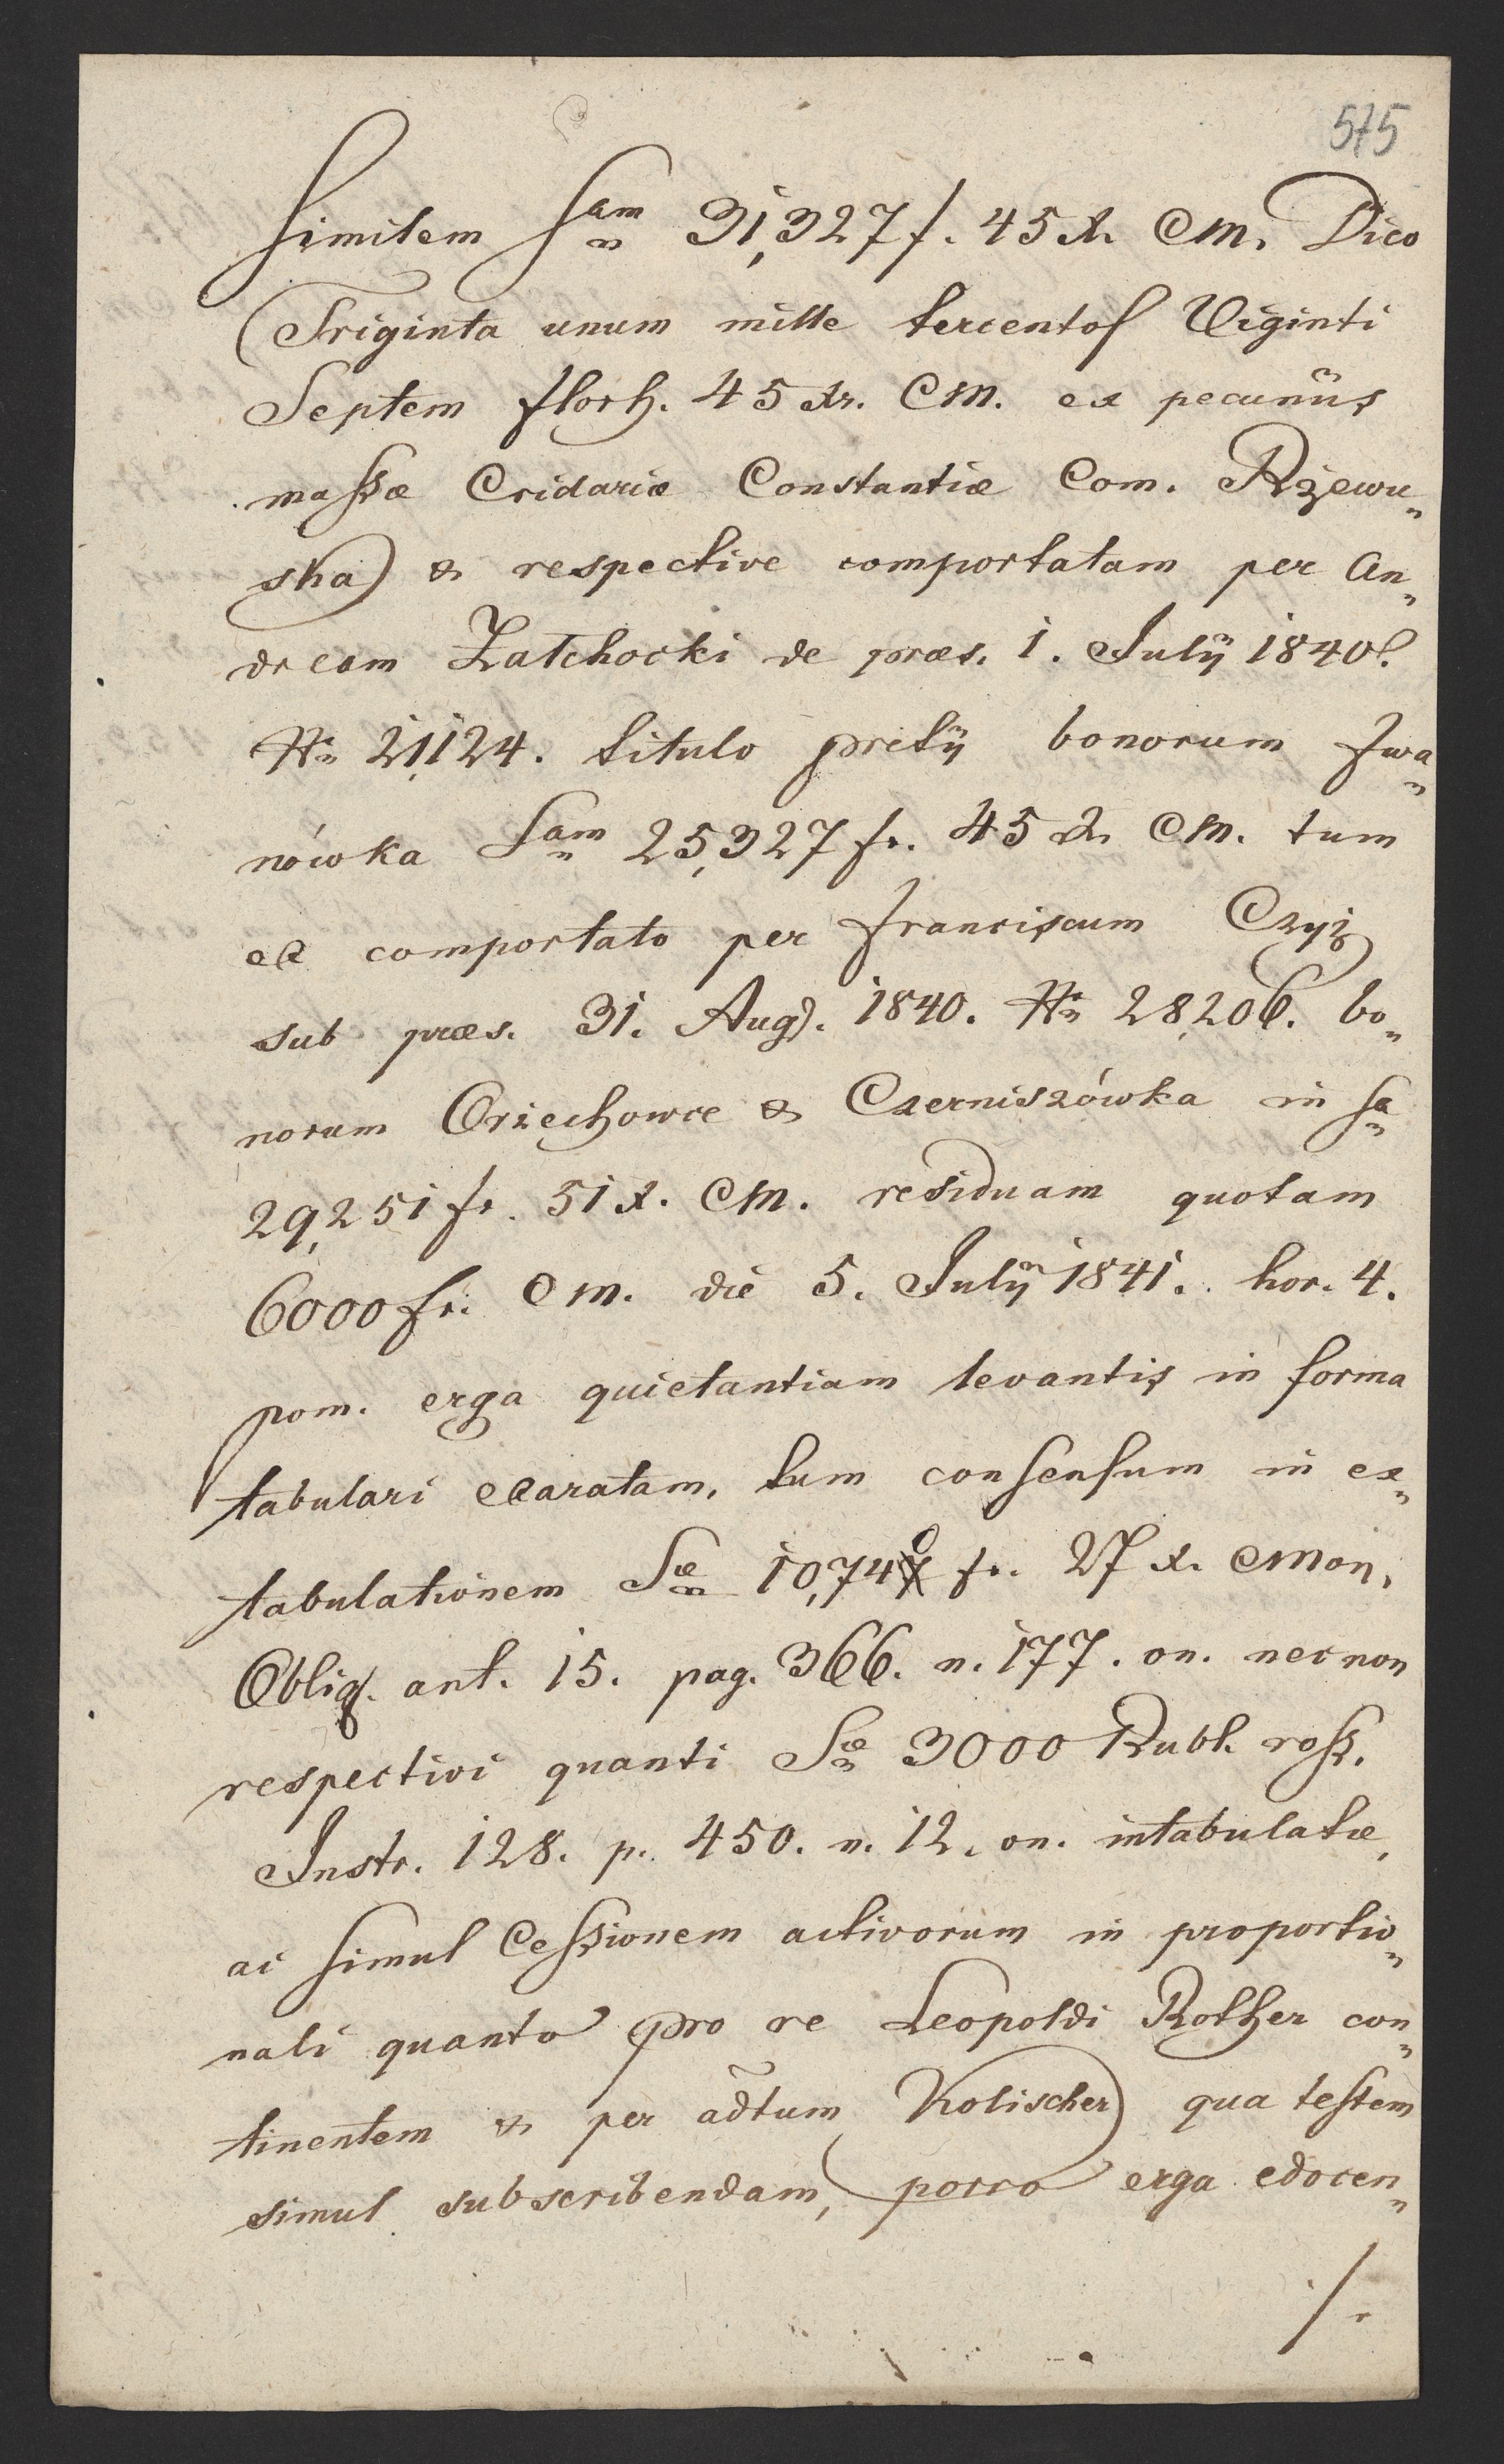 575
Similem Sam 31,327 f. 45 x. CM. Dico
(Triginta unum mille tercentos Viginti
Septem florh. 45 xr. CM. ex pecuniis
massæ Cridariæ Constantiæ Com. Rzewu„
ska) & respective comportatam per An„
dream Zatchocki de præs. 1. Julÿ 1840.
N 21,124. titulo pretÿ bonorum Iwa„
nówka Sam 25,327 fr. 45 x CM. tum
ex comportato per Franciscum Czyż
sub præs. 31. Aug. 1840. N 28,206. bo„
norum Orżechowce & Czerniszówka in Sa
29,251 fr. 51 x. CM. residuam quotam
6000 fr. CM. die 5. Julÿ 1841. hor. 4.
pom. erga quietantiam levantis in forma
tabulari exaratam, tum consensum in ex„
tabulationem Sæ 10,740 fr. 27 x. CMon.
Oblig. ant. 15. pag. 366. n. 177. on. necnon
respectivi quanti Sæ 3000 Rubl. ross.
Instr. 128. p. 450. n. 12. on. intabulatæ,
ac simul Cessionem activorum in proportio„
nali quanto pro re Leopoldi Rother con„
tinentem & per adtum Kolischer qua testem
simul subscribendam, porro erga edocen„
/.